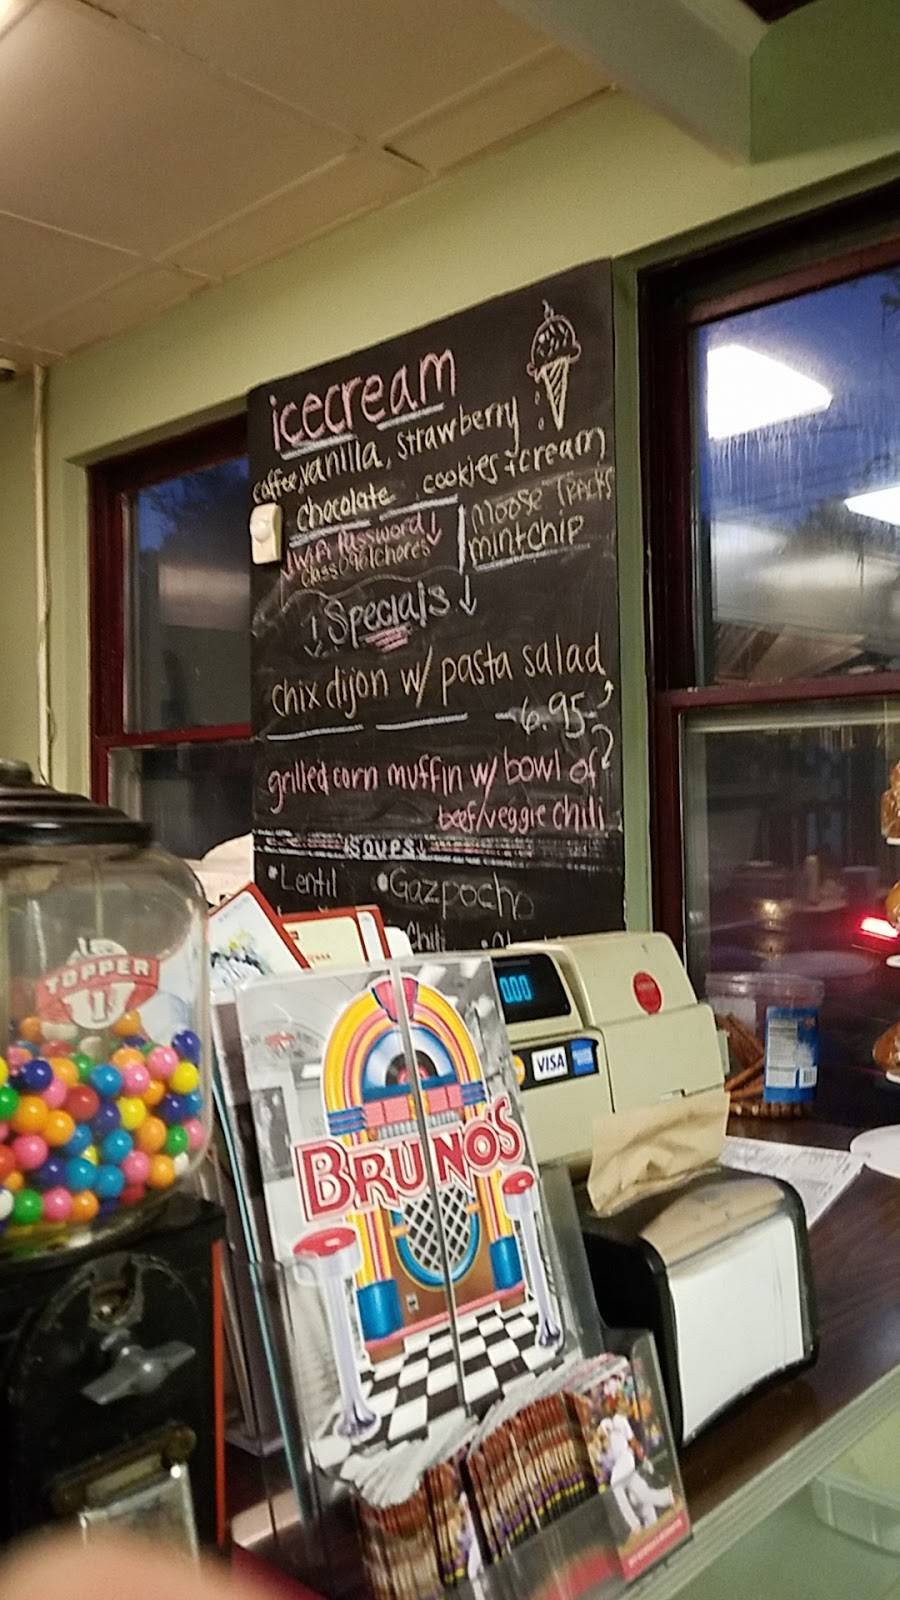 icecream
coffee, vanilla, strawberry
chocolate, cookies + cream
moose Tracks
mint chip
WiFi Password
Specials
chix dijon w/ pasta salad
6.95
grilled corn muffin w/ bowl of
beef/veggie chili
SOUPS
Lentil
Gazpacho
Chili
TOPPER
0.00
VISA
BRUNO'S